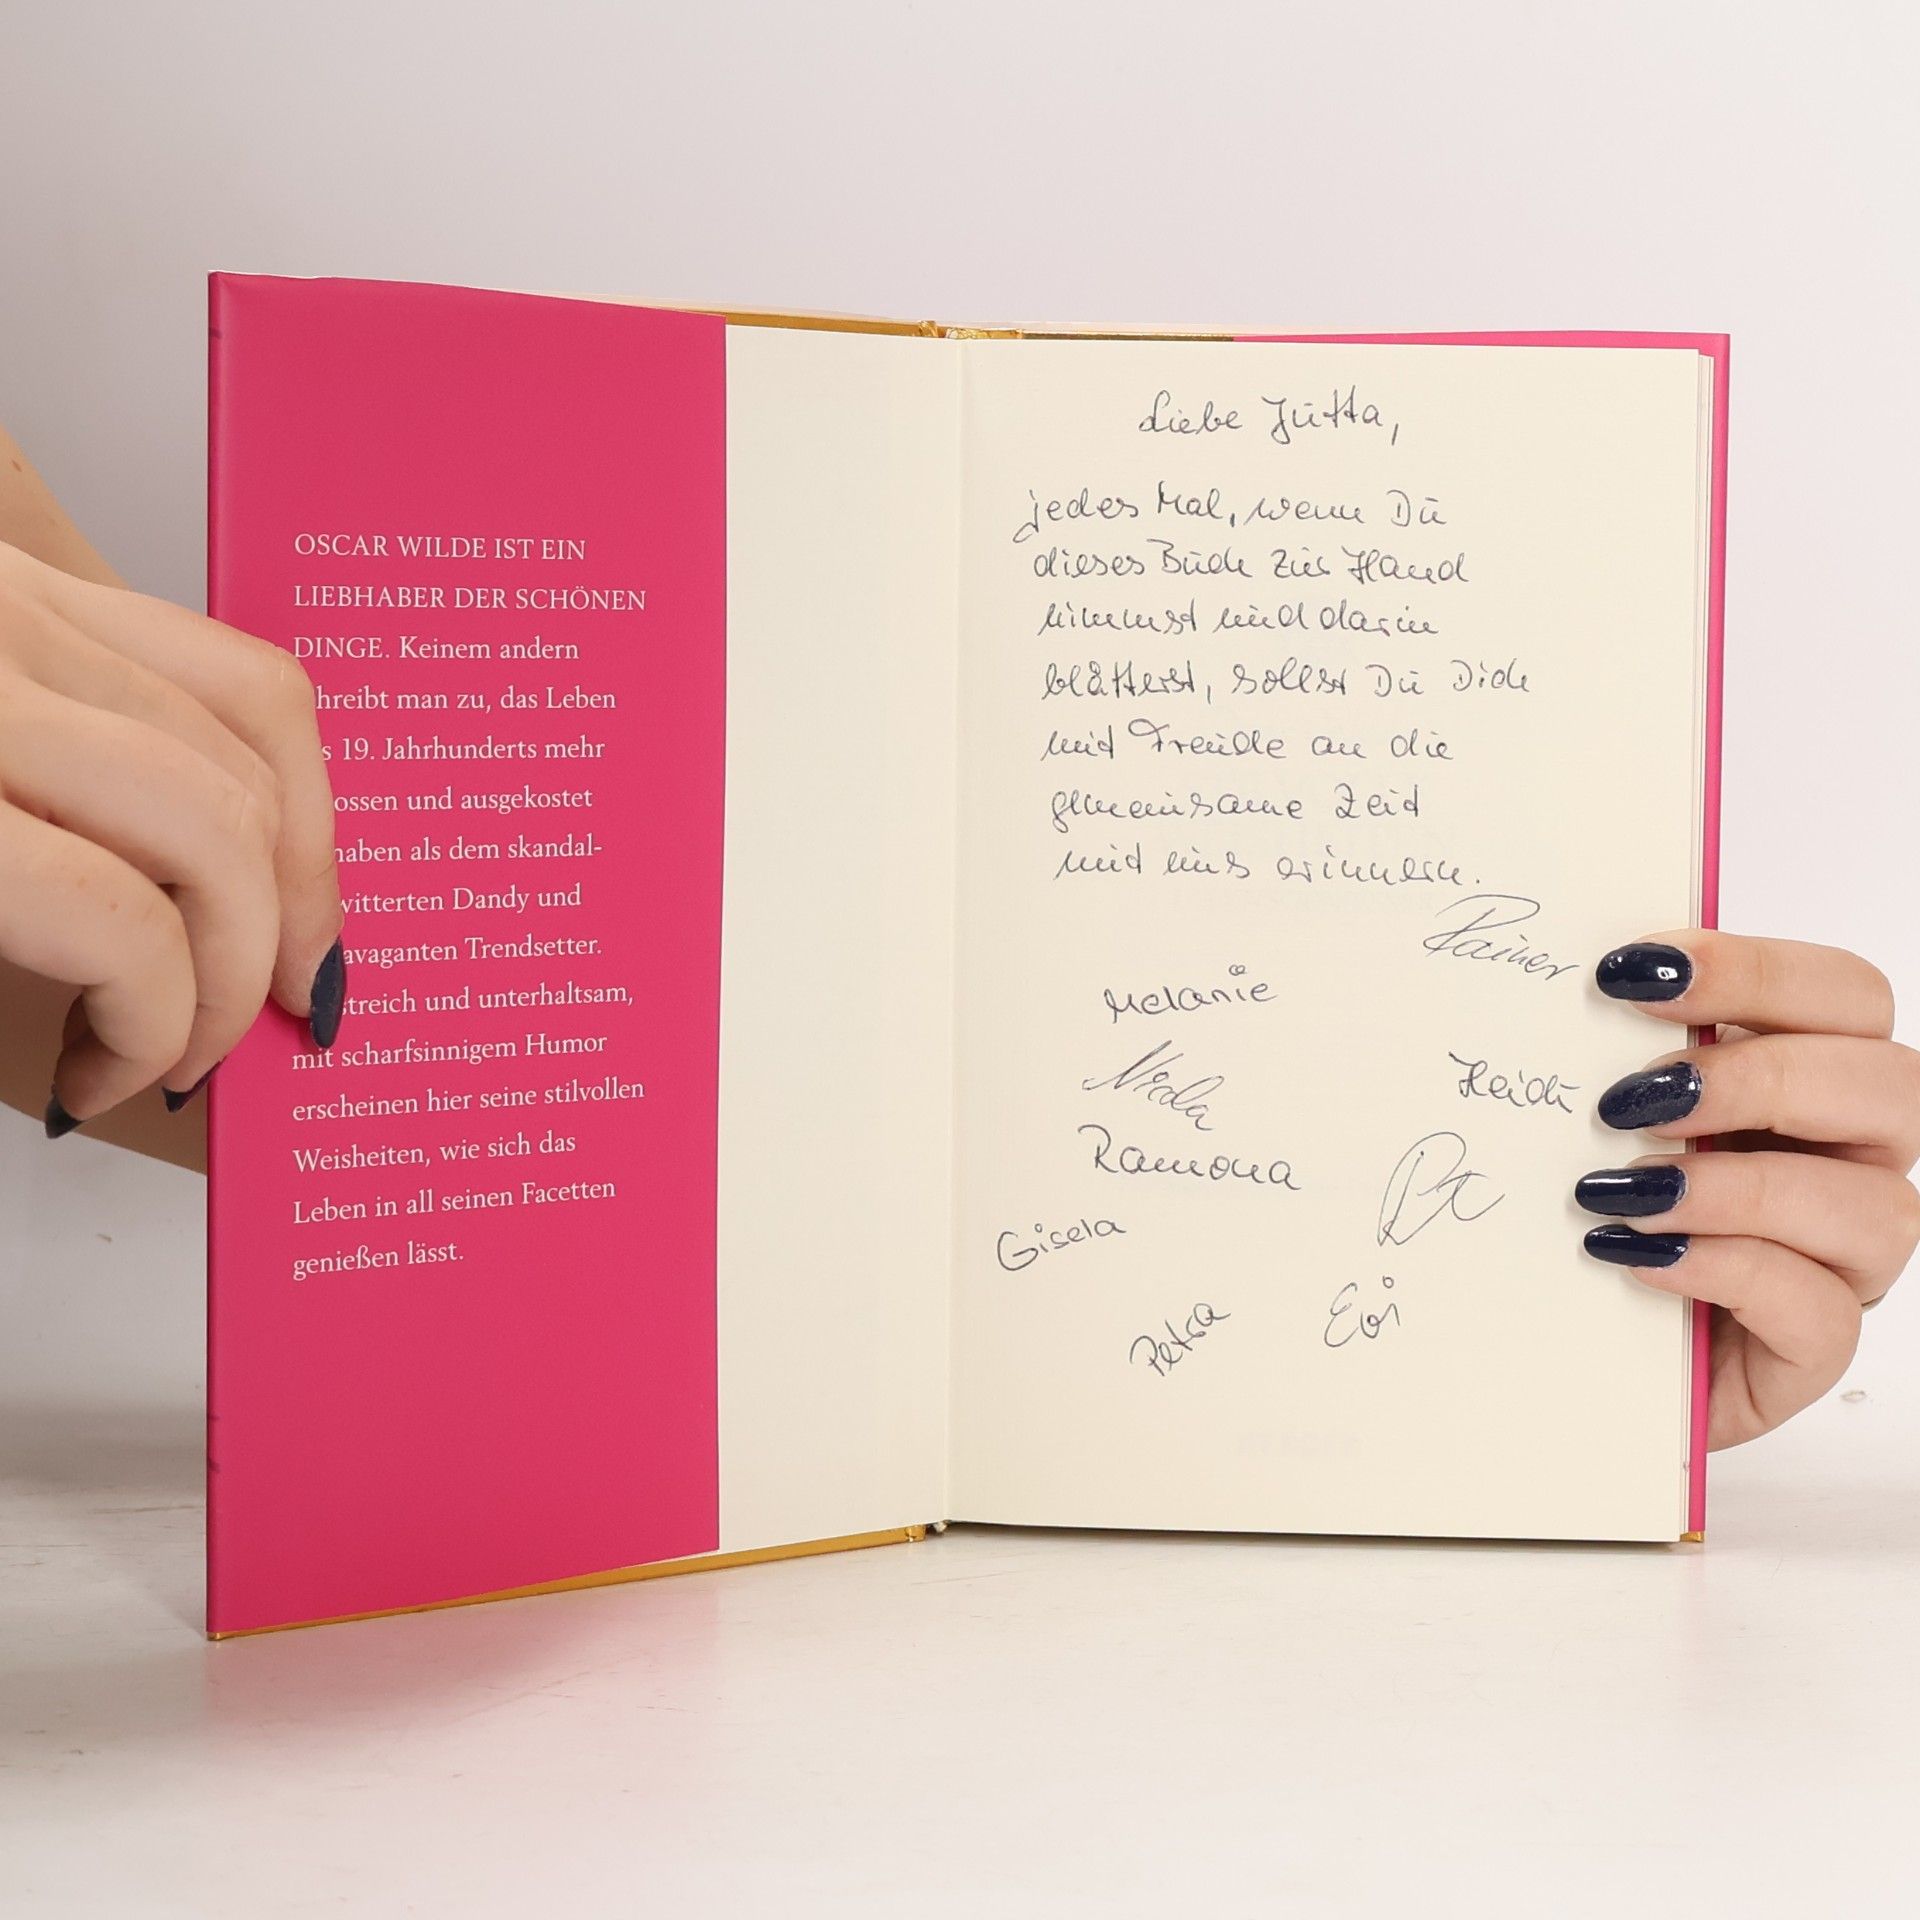 OSCAR WILDE IST EIN
LIEBHABER DER SCHÖNEN
DINGE. Keinem andern
hreibt man zu, das Leben
s 19. Jahrhunderts mehr
ossen und ausgekostet
haben als dem skandal-
witterten Dandy und
avaganten Trendsetter.
streich und unterhaltsam,
mit scharfsinnigem Humor
erscheinen hier seine stilvollen
Weisheiten, wie sich das
Leben in all seinen Facetten
genießen lässt.
Liebe Jutta,
jedes Mal, wenn Du
dieses Buch zur Hand
nimmst und darin
blätterst, sollst Du Dich
mit Freude an die
gemeinsame Zeit
mit uns erinnern.
Rainer
Melanie
Heidi
Ramona
Gisela
Evi
Petra